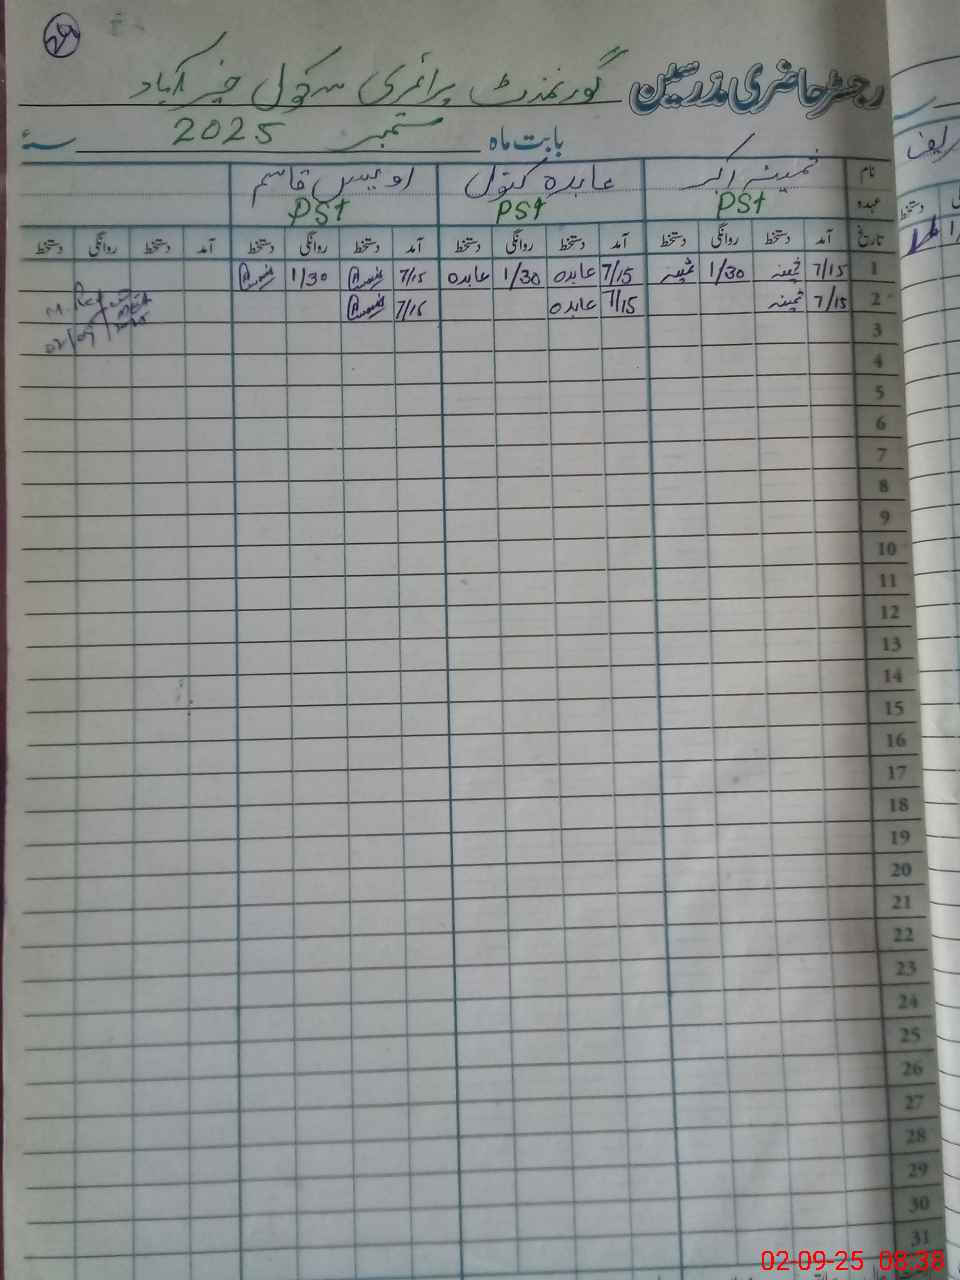 29
رجسٹر حاضری مدرسین گورنمنٹ پرائمری سکول خیر آباد
بابت ماہ ستمبر 2025 سنہ
نام ثمینہ اکبر عابدہ کنول اویس قاسم
عہدہ PST PST PST
تاریخ آمد دستخط روانگی دستخط آمد دستخط روانگی دستخط آمد دستخط روانگی دستخط آمد دستخط روانگی دستخط
1 7/15 ثمینہ 1/30 ثمینہ 7/15 عابدہ 1/30 عابدہ 7/15 1/30
2 7/15 ثمینہ 7/15 عابدہ 7/15
3
4
5
6
7
8
9
10
11
12
13
14
15
16
17
18
19
20
21
22
23
24
25
26
27
28
29
30
31
02-09-25 08:38